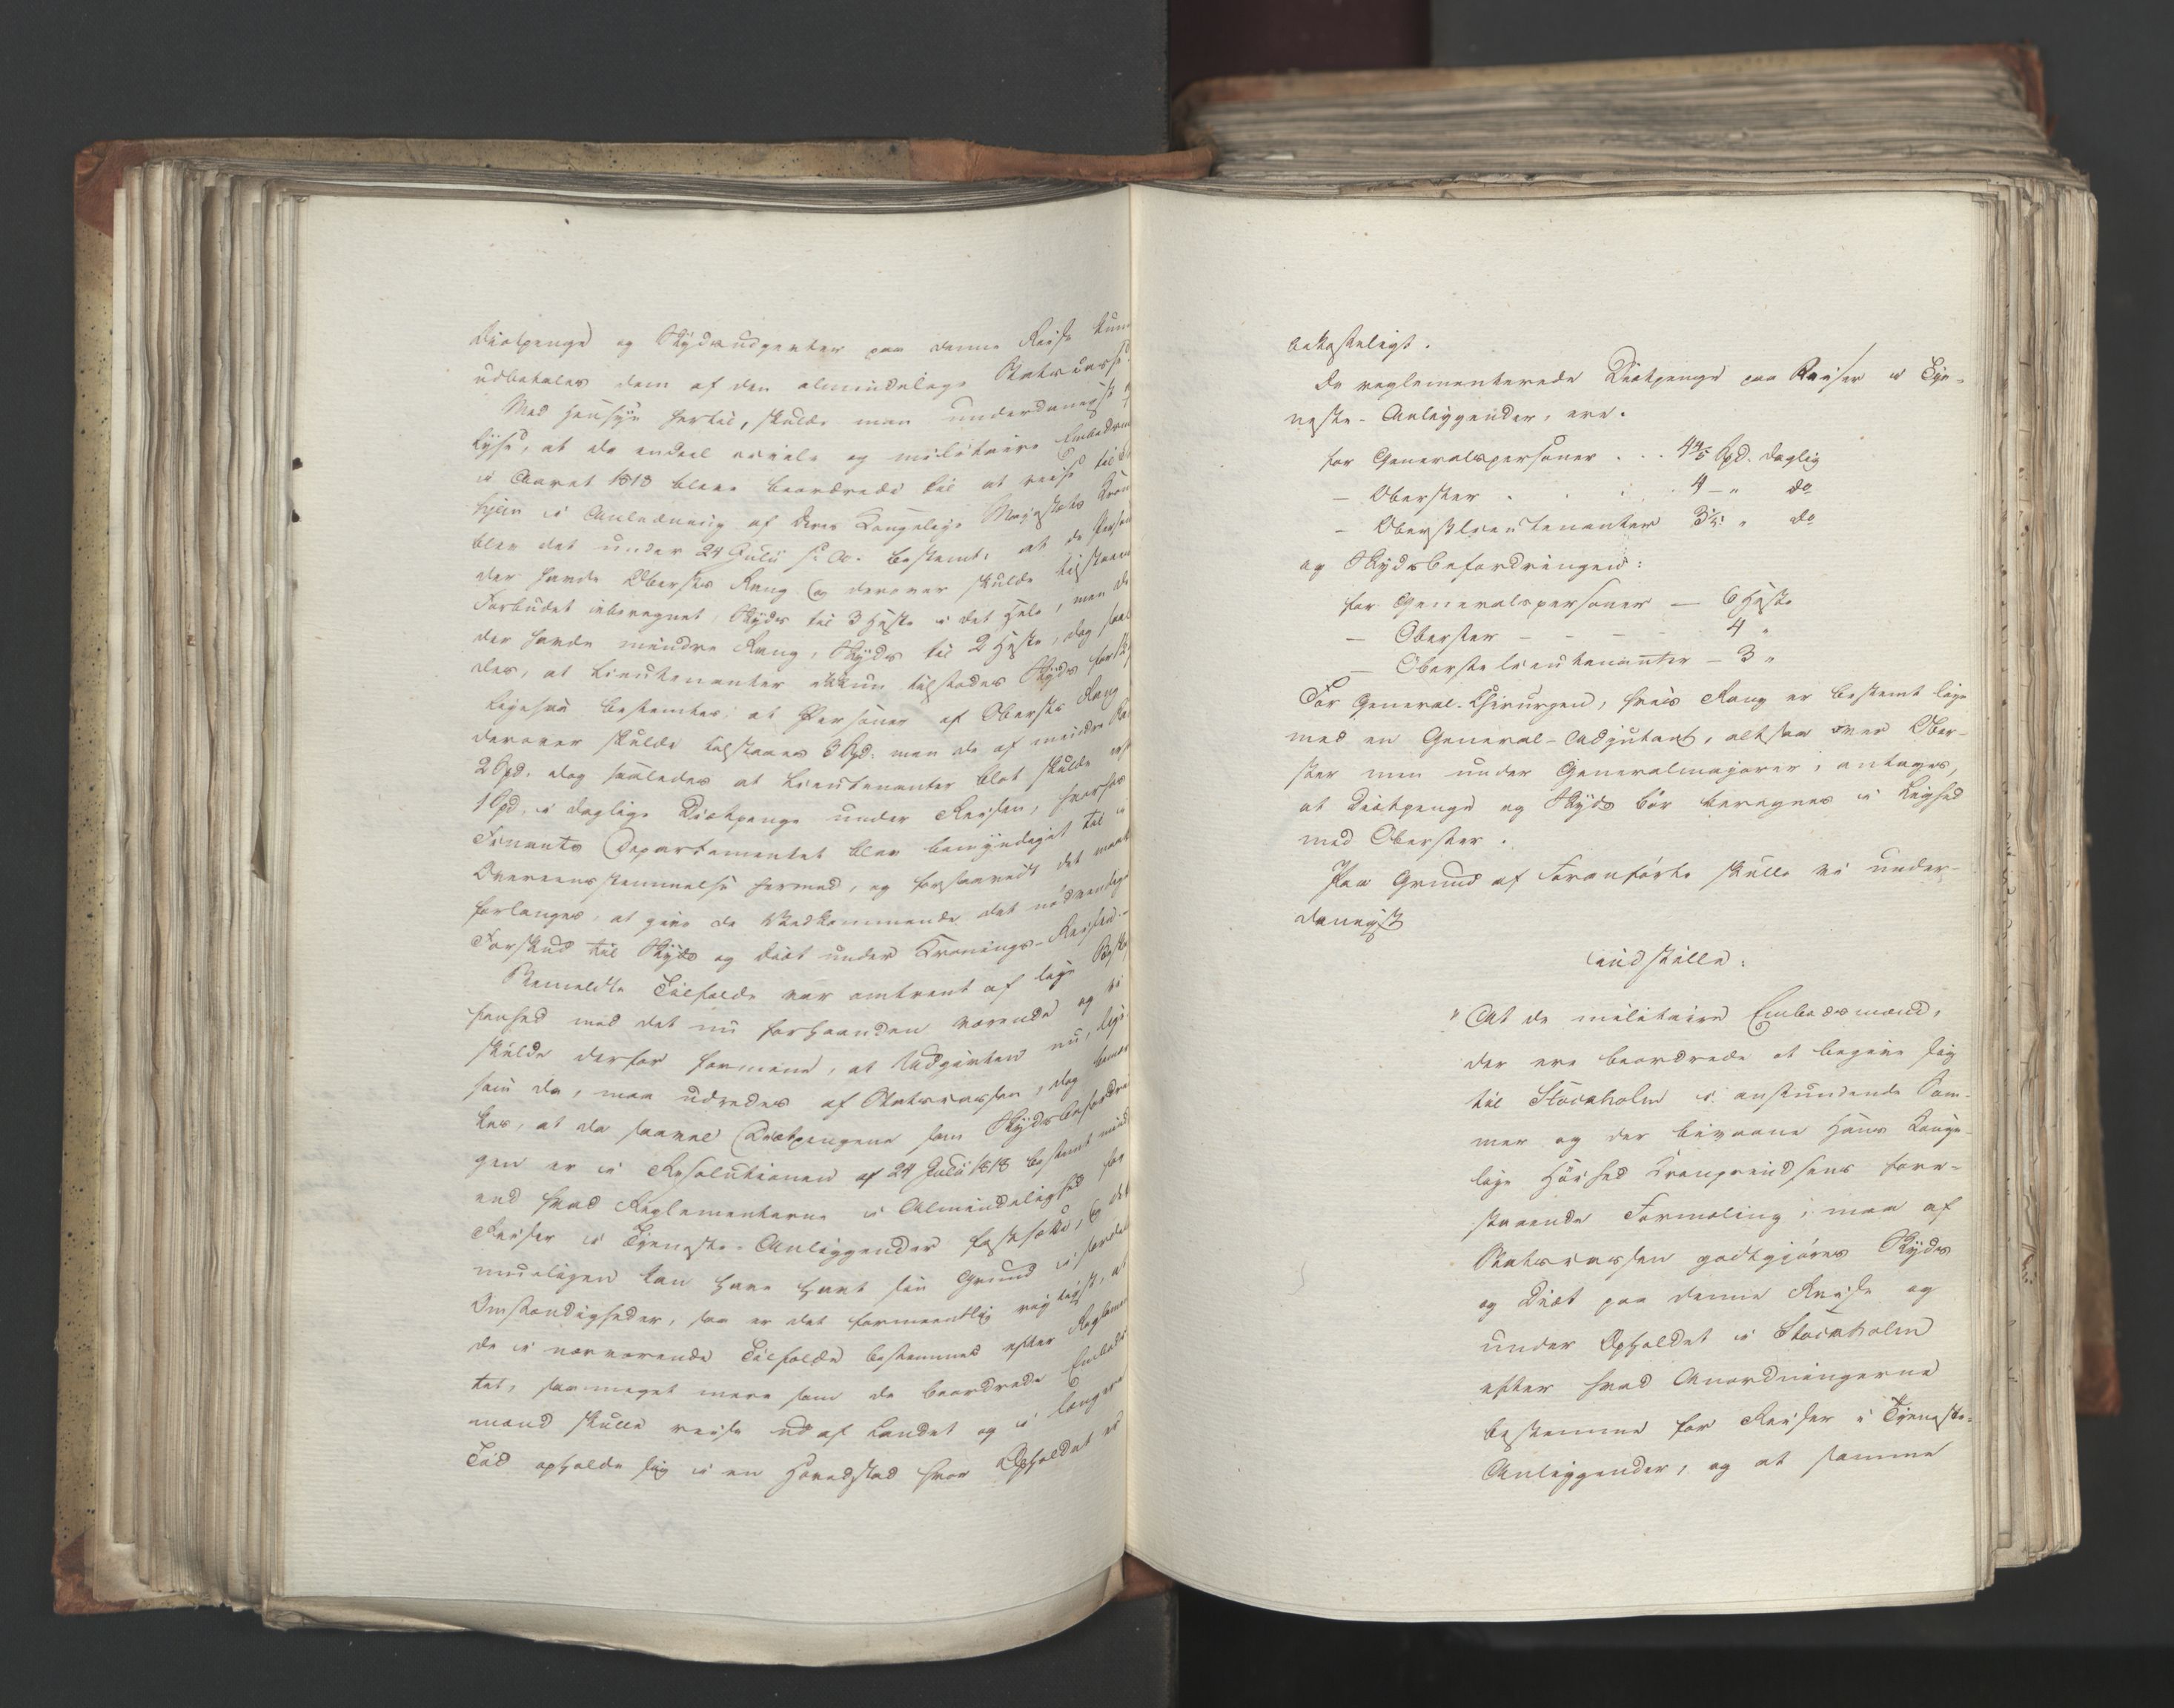 Diætpenge og Skydsudgevter paa denne Reise kun
udbetales dem af den almindelige Statscasse.
Med Hensyn hertil, skulde man underdanigst
lyse, at da endeel civile og militaire Embedsm
i Aaret 1818 bleve beordrede til at reise til
hjem i Anledning af Deres Kongelige Majestæts Kron
blev det under 24 Julii s. A. bestemt, at de Person
der havde Obersts Rang og derover skulde tilstaaes
Forbudet iberegnet, Skyds til 3 Heste i det Hele, men de
der havde mindre Rang, Skyds til 2 Heste, dog saal
des, at Lieutenanter ikkun tilstodes Skyds for
Ligesaa bestemtes, at Personer af Obersts Rang
derover skulde tilstaaes 3 Spd. men de af mindre
2 Spd. dog saaledes at Lieutenanter blot skulde
1 Spd. i daglige Diætpenge under Reisen, hvorhos
Finants Departementet blev bemyndiget til i
Overeensstemmelse hermed, og forsaavidt det maatte
forlanges, at give de Vedkommende det nødvendige
Forskud til Skyds og Diæt under Kronings-Reisen.
Bemeldte Tilfælde var omtrent af lige Beskaf
fenhed med det nu forhaanden værende og vi
skulde derfor formene, at Udgivten nu, lige
som da, maa udredes af Statscassen, dog bemær
kes, at da saavel Diætpengene som Skydsbefordrin
gen er i Resolutionen af 24 Julii 1818 bestemt mindre
end hvad Reglementerne i Almindelighed for
Reiser i Tjeneste-Anliggender fastsætte, og det
mueligen kan have havt sin Grund i særdeles
Omstændigheder, saa er det formeentlig rigtigst, at
de i nærværende Tilfælde bestemmes efter Reglemen
tet, saameget mere som de beordrede Embeds
mænd skulle reise ud af Landet og i længere
Tid opholde sig i en Hovedstad hvor Opholdet er
bekosteligt.
De reglementerede Diætpenge paa Reiser i Tje-
neste-Anliggender, ere.
for Generalspersoner . . . 4 4/5 Spd. daglig
— Oberster . . . 4 — " do
— Oberstlieutenanter 3 1/5 " do
og Skydsbefordringen:
for Generalspersoner — 6 Heste
— Oberster - - - - 4 "
— Oberstelieutenanter — 3 "
For General-Chirurgen, hvis Rang er bestemt lige
med en General-Adjutant, altsaa over Ober-
ster men under Generalmajorer, antages,
at Diætpenge og Skyds bør beregnes i Lighed
med Oberster.
Paa Grund af Foranførte skulle vi under-
danigst
indstille:
"At de militaire Embedsmænd,
der ere beordrede at begive sig
til Stockholm i anstundende Som-
mer og der bivaane Hans Konge-
lige Høihed Kronprindsens fore-
staaende Formæling, maa af
Statscassen godtgjøres Skyds
og Diæt paa denne Reise og
under Opholdet i Stockholm
efter hvad Anordningerne
bestemme for Reiser i Tjeneste-
Anliggender, og at samme